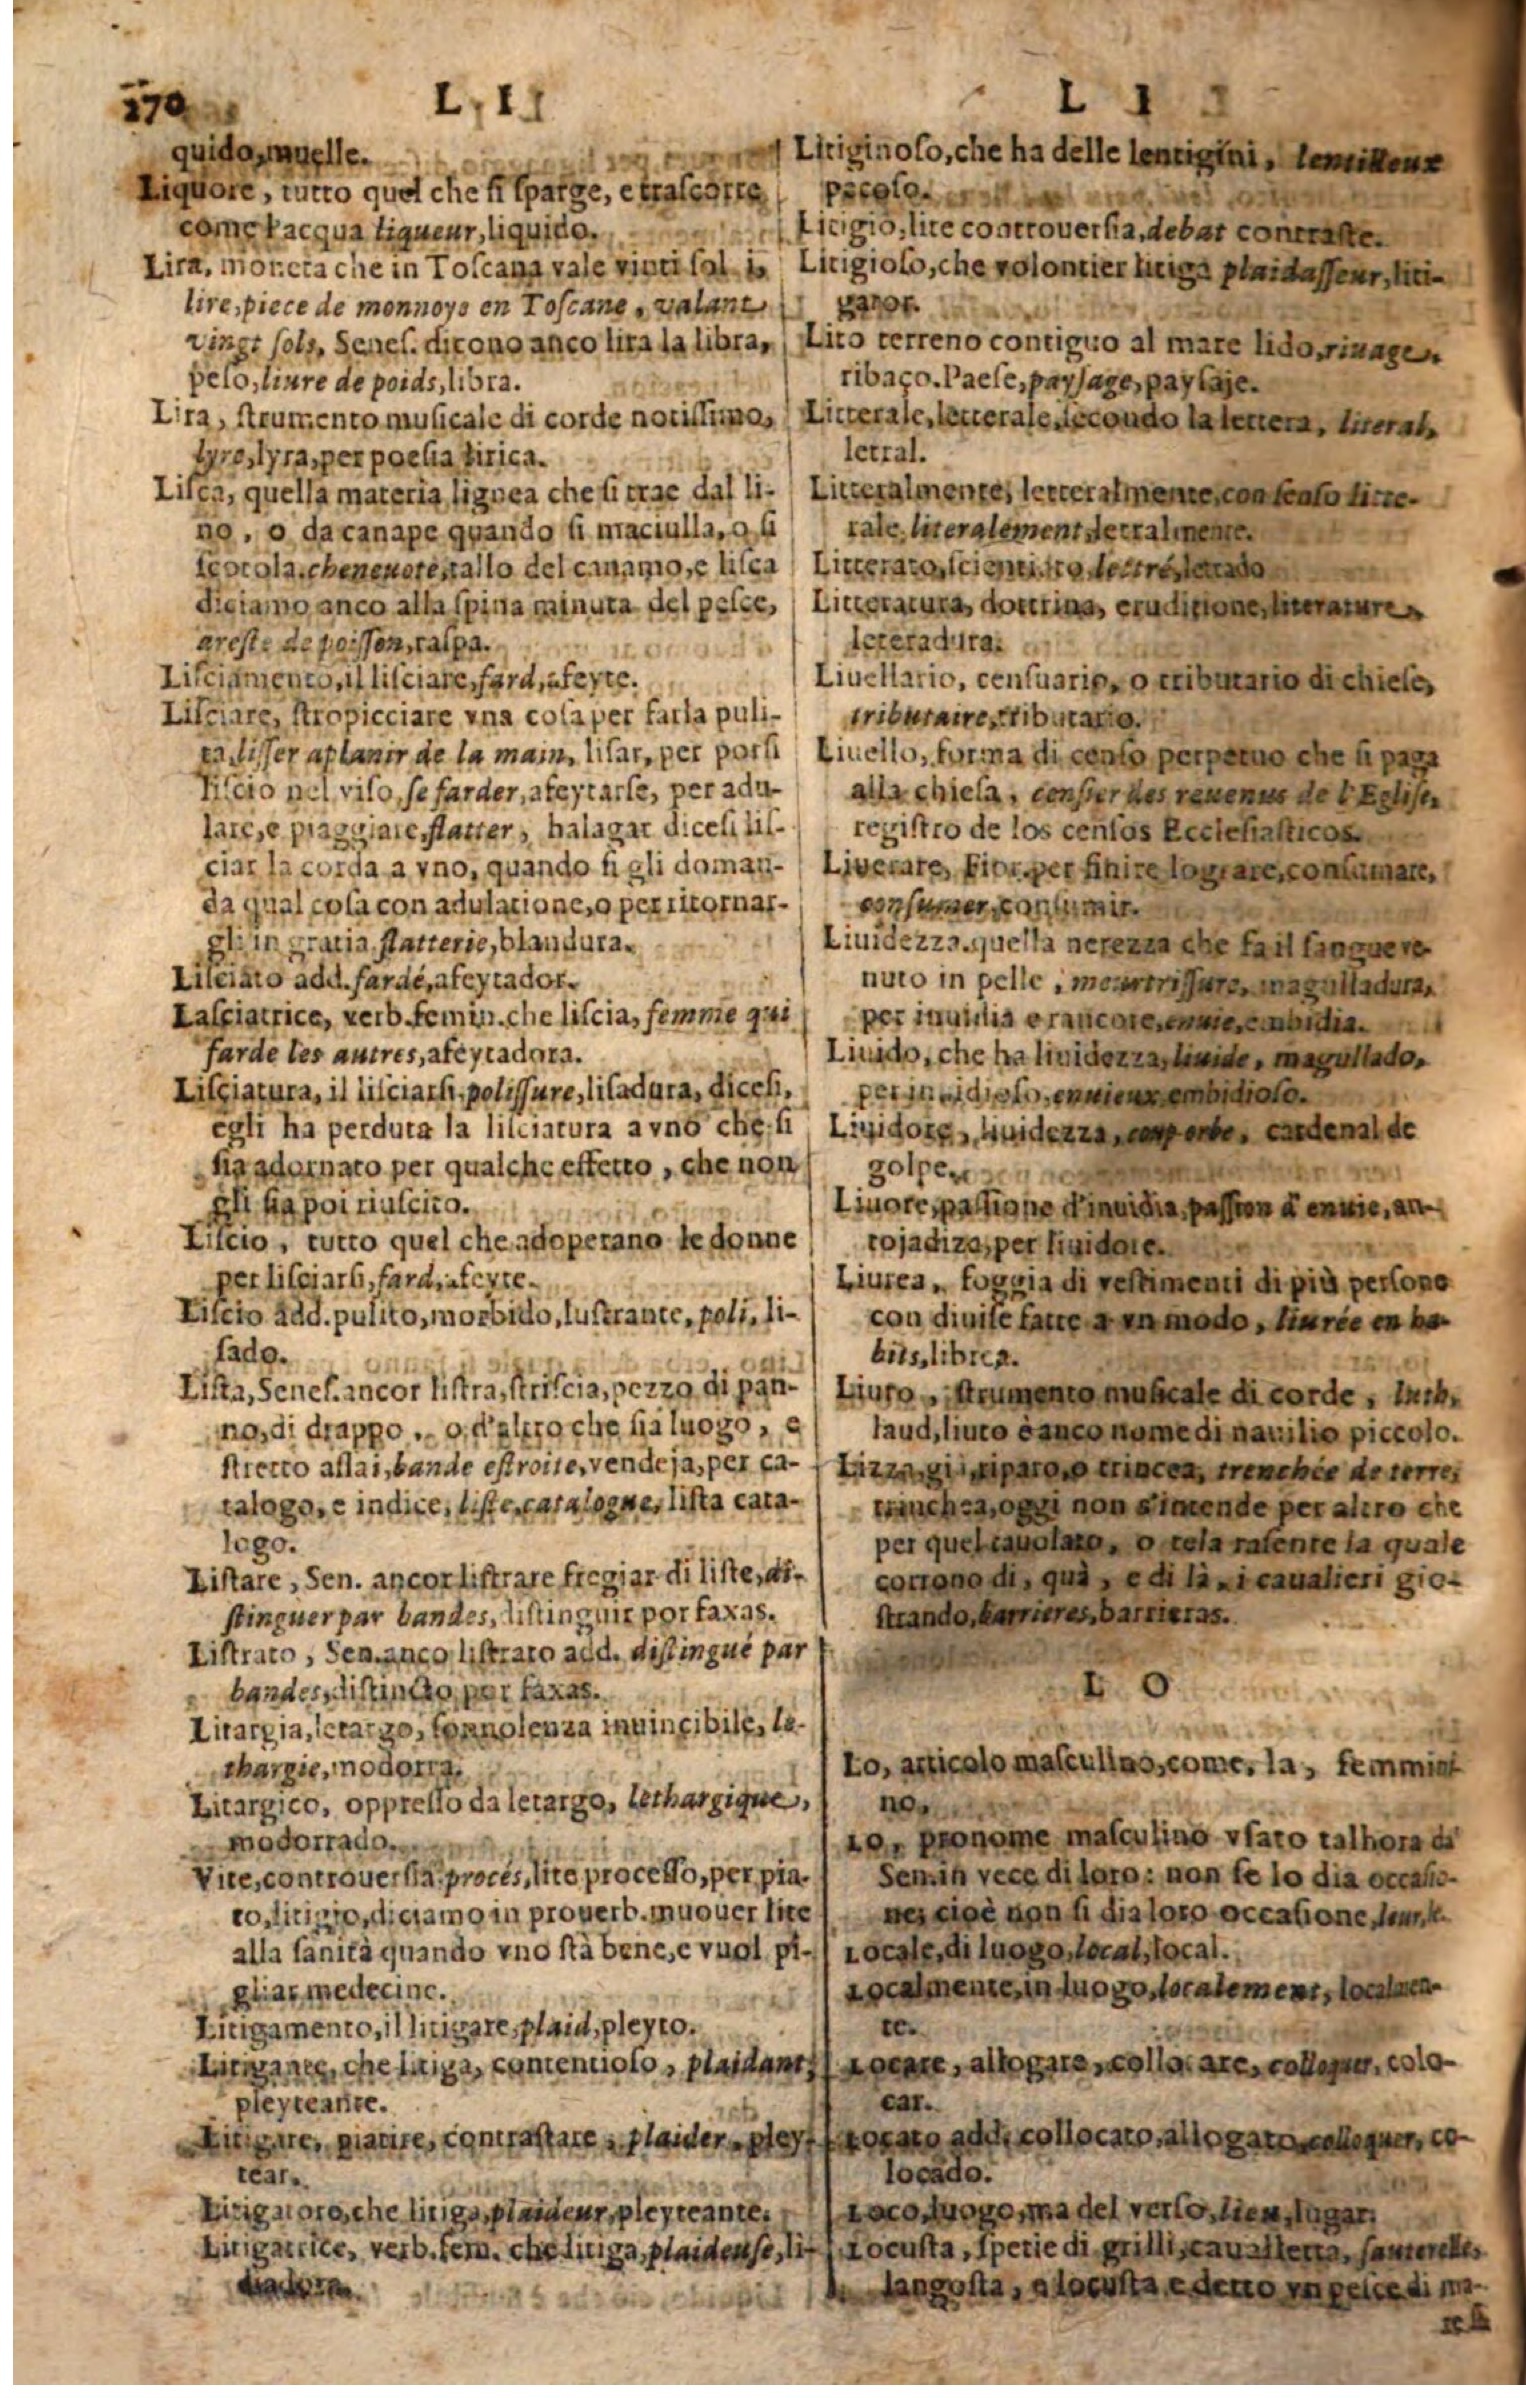 270
L I
quido, muelle.
Liquore, tutto quel che ſi ſparge, e traſcorre
come l'acqua liqueur, liquido.
Lira, moneta che in Toſcana vale vinti ſol i,
lire, piece de monnoye en Toſcane, valant
vingt ſols, Seneſ. dicono anco lira la libra,
peſo, liure de poids, libra.
Lira, ſtrumento muſicale di corde notiſſimo,
lyre, lyra, per poeſia lirica.
Liſca, quella materia lignea che ſi trae dal li-
no, o da canape quando ſi maciulla, o ſi
ſcotola. cheneuote, tallo del canamo, e liſca
diciamo anco alla ſpina minuta del peſce,
areſte de poiſſon, raſpa.
Liſciamento, il liſciare, fard, afeyte.
Liſciare, ſtropicciare vna coſa per farla puli-
ta, liſſer aplanir de la main, liſar, per porſi
liſcio nel viſo, ſe farder, afeytarſe, per adu-
lare, e piaggiare, flatter, halagar diceſi liſ-
ciar la corda a vno, quando ſi gli doman-
da qual coſa con adulatione, o per ritornar-
gli in gratia flatterie, blandura.
Liſciato add. fardé, afeytador.
Laſciatrice, verb. femin. che liſcia, femme qui
farde les autres, afeytadora.
Liſciatura, il liſciarſi, poliſſure, liſadura, diceſi,
egli ha perduta la liſciatura a vno che ſi
ſia adornato per qualche effetto, che non
gli ſia poi riuſcito.
Liſcio, tutto quel che adoperano le donne
per liſciarſi, fard, afeyte.
Liſcio add. pulito, morbido, luſtrante, poli, li-
ſado.
Liſta, Seneſ. ancor liſtra, ſtriſcia, pezzo di pan-
no, di drappo, o d'altro che ſia luogo, e
ſtretto aſſai, bande eſtroite, vendeja, per ca-
talogo, e indice, liſte, catalogue, liſta cata-
logo.
Liſtare, Sen. ancor liſtrare fregiar di liſte, di-
ſtinguer par bandes, diſtinguir por faxas.
Liſtrato, Sen. anco liſtrato add. diſtingué par
bandes, diſtincto por faxas.
Litargia, letargo, ſonnolenza inuincibile, le-
thargie, modorra.
Litargico, oppreſſo da letargo, lethargique,
modorrado.
Vite, controuerſia procés, lite proceſſo, per pia-
to, litigio, diciamo in prouerb. muouer lite
alla ſanità quando vno ſtà bene, e vuol pi-
gliar medecine.
Litigamento, il litigare, plaid, pleyto.
Litigante, che litiga, contentioſo, plaidant,
pleyteante.
Litigare, piatire, contraſtare, plaider, pley-
tear.
Litigatore, che litiga, plaideur, pleyteante.
Litigatrice, verb. fem. che litiga, plaideuſe, li-
diadora.
L I
Litiginoſo, che ha delle lentigini, lentilleux
pecoſo.
Litigio, lite controuerſia, debat contraſte.
Litigioſo, che volontier litiga plaidaſſeur, liti-
gator.
Lito terreno contiguo al mare lido, riuage,
ribaço. Paeſe, payſage, payſaje.
Litterale, letterale, ſecondo la lettera, literal,
letral.
Litteralmente, letteralmente, con ſenſo litte-
rale, literalement, letralmente.
Litterato, lettré, letrado
Litteratura, dottrina, eruditione, literature,
leteradura.
Liuellario, cenſuario, o tributario di chieſe,
tributaire, tributario.
Liuello, forma di cenſo perpetuo che ſi paga
alla chieſa, cenſier des reuenus de l'Egliſe,
regiſtro de los cenſos Eccleſiaſticos.
Liverare, Fior. per finire lograre, conſumare,
conſumer, conſumir.
Liuidezza, quella nerezza che fa il ſangue ve-
nuto in pelle, meurtriſſure, magulladura,
per inuidia e rancore, enuie, enbidia.
Liuido, che ha liuidezza, liuide, magullado,
per inuidioſo, enuieux, embidioſo.
Liuidore, liuidezza, coup orbe, cardenal de
golpe.
Liuore, paſſione d'inuidia, paſſion d'enuie, an-
tojadizo, per liuidore.
Liurea, foggia di veſtimenti di più perſone
con diuiſe fatte a vn modo, liurée en ha-
bits, librea.
Liuto, ſtrumento muſicale di corde, luth,
laud, liuto è anco nome di nauilio piccolo.
Lizza, già, riparo, o trincea, trenchée de terre,
trinchea, oggi non s'intende per altro che
per quel tauolato, o tela raſente la quale
corrono di, quà, e di là, i caualieri gio-
ſtrando, barrieres, barrieras.
L O
Lo, articolo maſculino, come, la, femmini
no,
Lo, pronome maſculino vſato talhora da
Sen. in vece di loro: non ſe lo dia occaſio-
ne, cioè non ſi dia loro occaſione, leur,
Locale, di luogo, local, local.
Localmente, in luogo, localement, localmen-
te.
Locare, allogare, collocare, colloquer, colo-
car.
Locato add. collocato, allogato, colloquer, co-
locado.
Loco, luogo, ma del verſo, lieu, lugar.
Locuſta, ſpetie di grilli, caualletta, ſauterelle,
langoſta, o locuſta e detto vn peſce di ma-